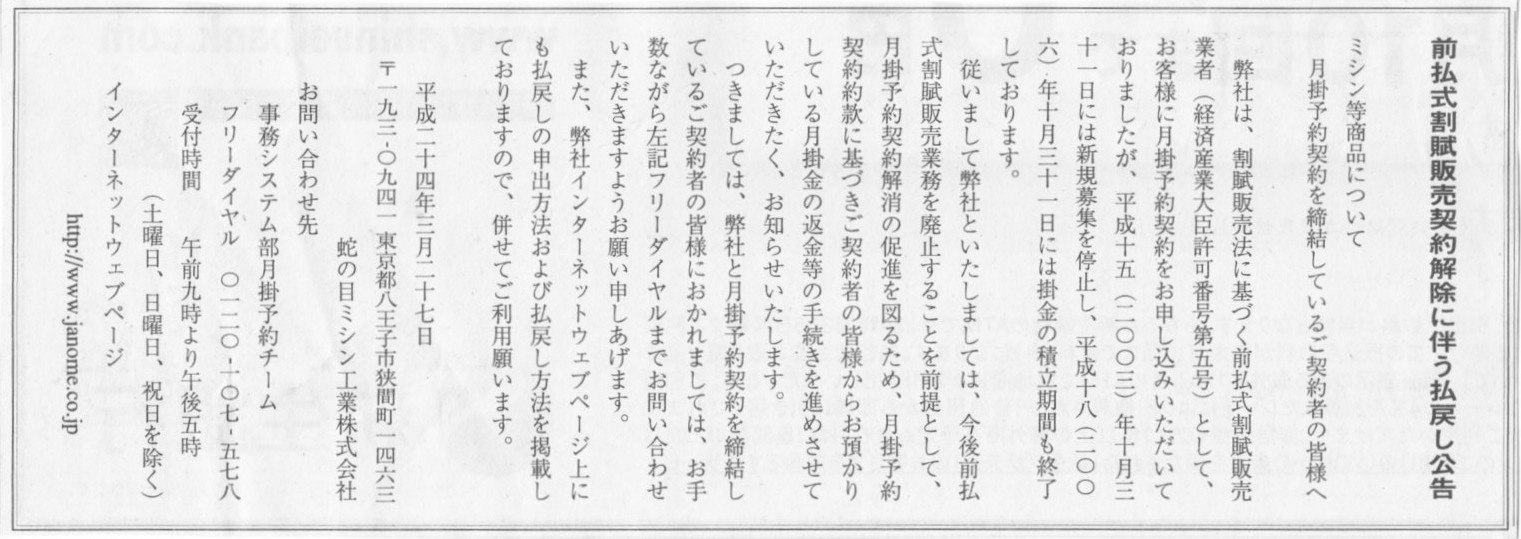 前払式割賦販売契約解除に伴う払戻し公告
ミシン等商品について
月掛予約契約を締結しているご契約者の皆様へ
弊社は、割賦販売法に基づく前払式割賦販売
業者（経済産業大臣許可番号第五号）として、
お客様に月掛予約契約をお申し込みいただいて
おりましたが、平成十五（二〇〇三）年十月三
十一日には新規募集を停止し、平成十八（二〇〇
六）年十月三十一日には掛金の積立期間も終了
しております。
従いまして弊社といたしましては、今後前払
式割賦販売業務を廃止することを前提として、
月掛予約契約解消の促進を図るため、月掛予約
契約約款に基づきご契約者の皆様からお預かり
している月掛金の返金等の手続きを進めさせて
いただきたく、お知らせいたします。
つきましては、弊社と月掛予約契約を締結し
ているご契約者の皆様におかれましては、お手
数ながら左記フリーダイヤルまでお問い合わせ
いただきますようお願い申しあげます。
また、弊社インターネットウェブページ上に
も払戻しの申出方法および払戻し方法を掲載し
ておりますので、併せてご利用願います。
平成二十四年三月二十七日
〒一九三-〇九四一 東京都八王子市狭間町一四六三
蛇の目ミシン工業株式会社
お問い合わせ先
事務システム部月掛予約チーム
フリーダイヤル 〇一二〇-一〇七-五七八
受付時間 午前九時より午後五時
（土曜日、日曜日、祝日を除く）
インターネットウェブページ
http://www.janome.co.jp